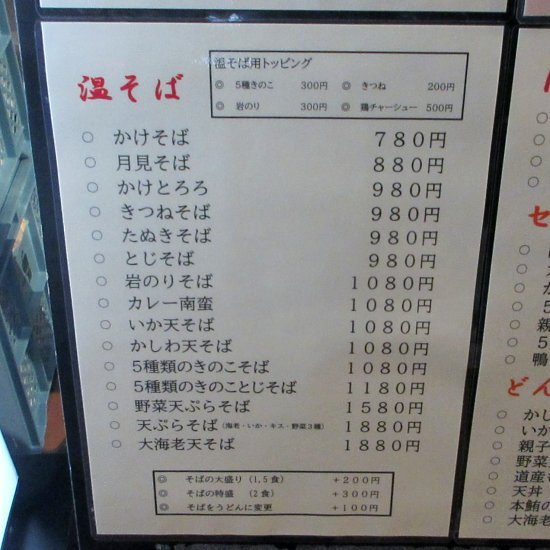 温そば
温そば用トッピング
◎ 5種きのこ 300円 ◎ きつね 200円
◎ 岩のり 300円 ◎ 鶏チャーシュー 500円
○ かけそば 780円
○ 月見そば 880円
○ かけとろろ 980円
○ きつねそば 980円
○ たぬきそば 980円
○ とじそば 980円
○ 岩のりそば 1080円
○ カレー南蛮 1080円
○ いか天そば 1080円
○ かしわ天そば 1080円
○ 5種類のきのこそば 1080円
○ 5種類のきのことじそば 1180円
○ 野菜天ぷらそば 1580円
○ 天ぷらそば(海老・いか・キス・野菜3種) 1880円
○ 大海老天そば 1880円
◎ そばの大盛り (1,5食) +200円
◎ そばの特盛 (2食) +300円
◎ そばをうどんに変更 +100円
セ
○ 5
○ 親
○ 5
○ 鴨
どん
○ かし
○ いか
○ 親子
○ 野菜
○ 道産
○ 天丼
○ 本鮪の
○ 大海老